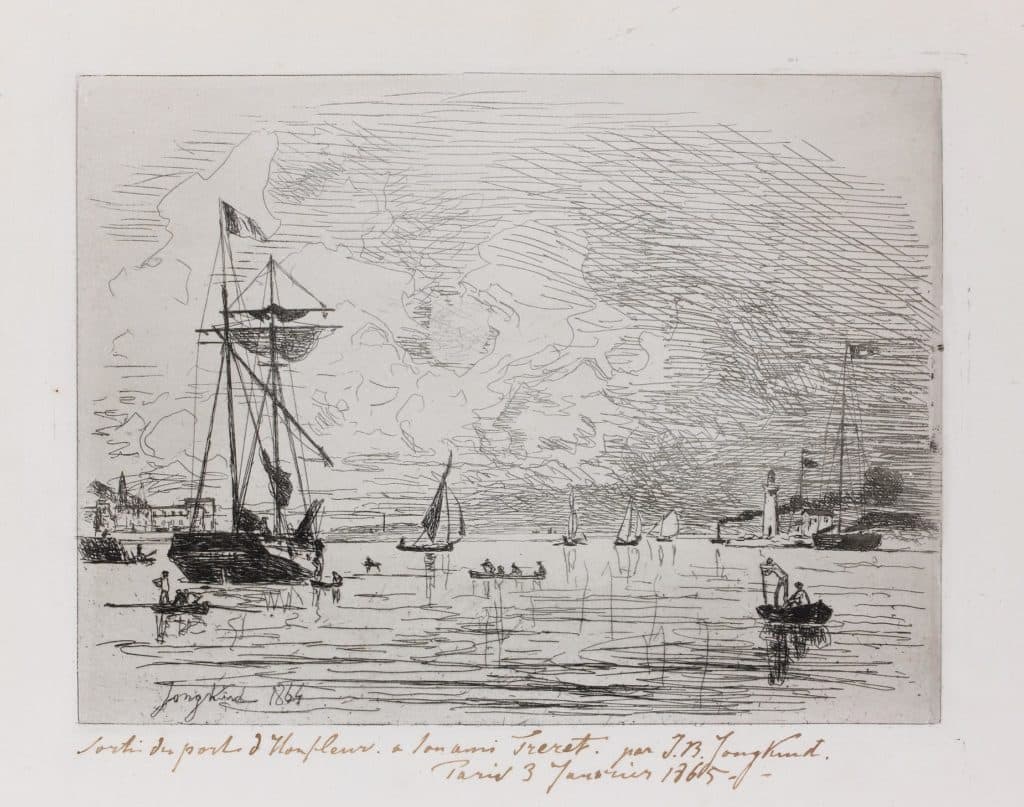 Jongkind 1864
Sortie du port d'Honfleur. a son ami Freret. par J. B. Jongkind.
Paris 3 Janvier 1865 - -